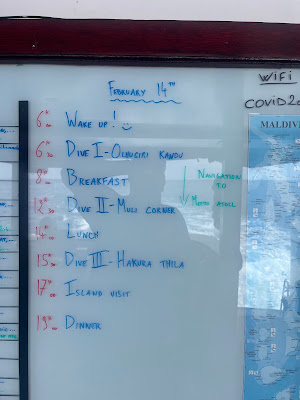 FEBRUARY 14TH
6 00 WAKE UP! 
6 30 DIVE I - OLHUGIRI KANDU
8 00 BREAKFAST
NAVIGATION
TO
ATOLL
12 30 DIVE II - MULI CORNER
14 00 LUNCH
15 30 DIVE III - HAKURA THILA
17 30 ISLAND VISIT
19 30 DINNER
WIFI
MALDIV